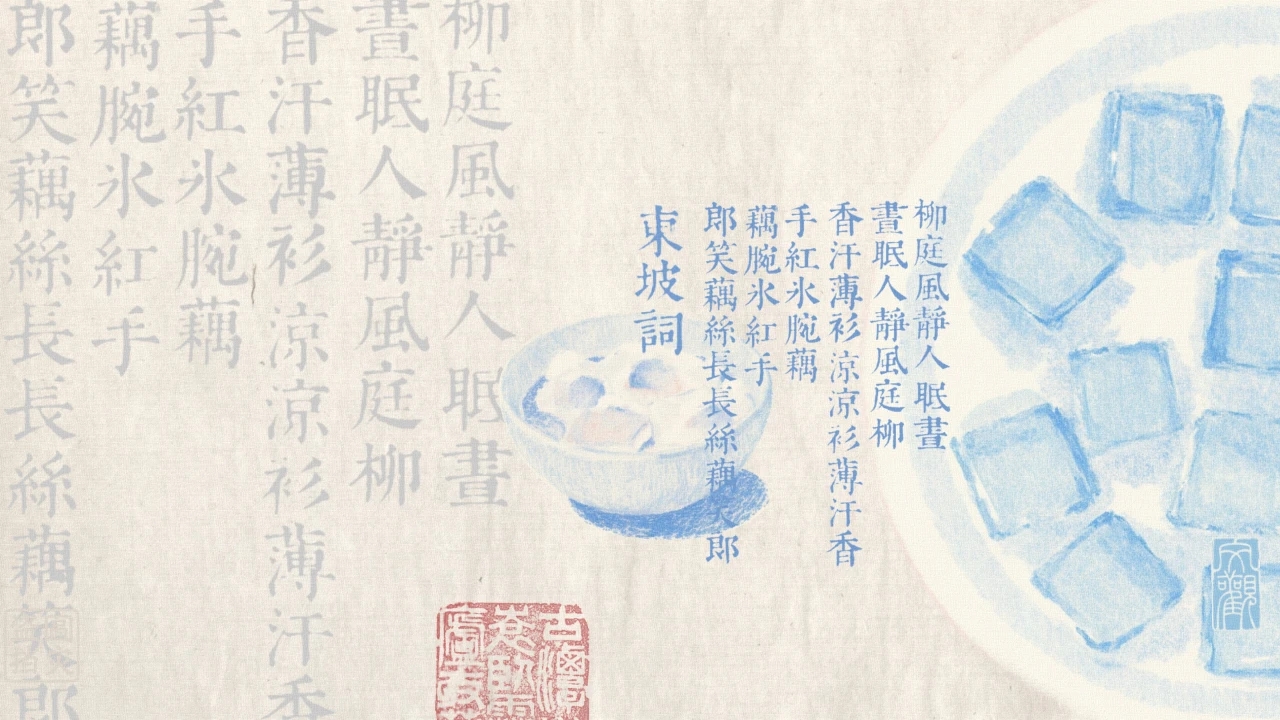 文觀
柳庭風靜人眠晝
晝眠人靜風庭柳
香汗薄衫涼涼衫薄汗香
手紅氷腕藕
藕腕氷紅手
郎笑藕絲長長絲藕笑郎
東坡詞
柳庭風靜人眠晝
晝眠人靜風庭柳
香汗薄衫涼涼衫薄汗香
手紅氷腕藕
藕腕氷紅手
郎笑藕絲長長絲藕笑郎